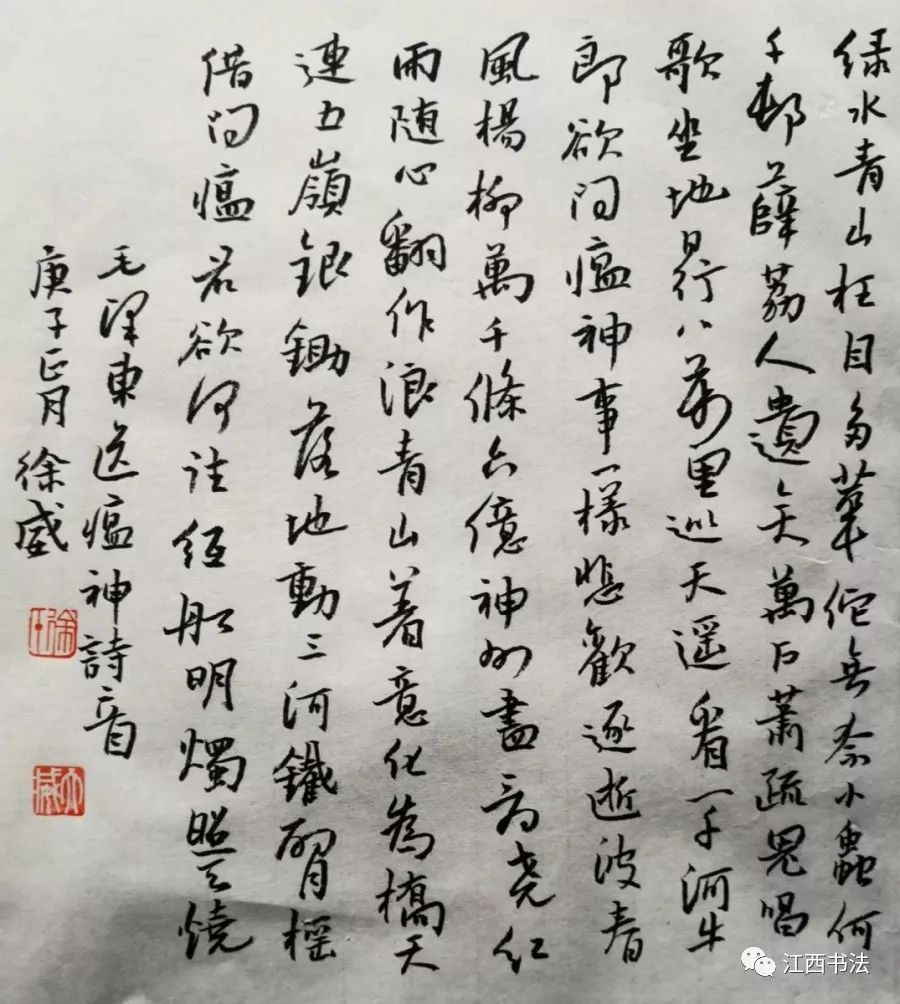 绿水青山枉自多華佗無奈小蟲何
千邨薜荔人遺矢萬戶蕭疏鬼唱
歌坐地日行八萬里巡天遥看一千河牛
郎欲问瘟神事一樣悲歡逐逝波春
風楊柳萬千條六億神州盡舜尧红
雨随心翻作浪青山着意化為橋天
連五嶺銀鋤落地動三河鐵臂摇
借问瘟君欲何往纸船明燭照天燒
毛泽東送瘟神詩二首
庚子正月徐威
江西书法